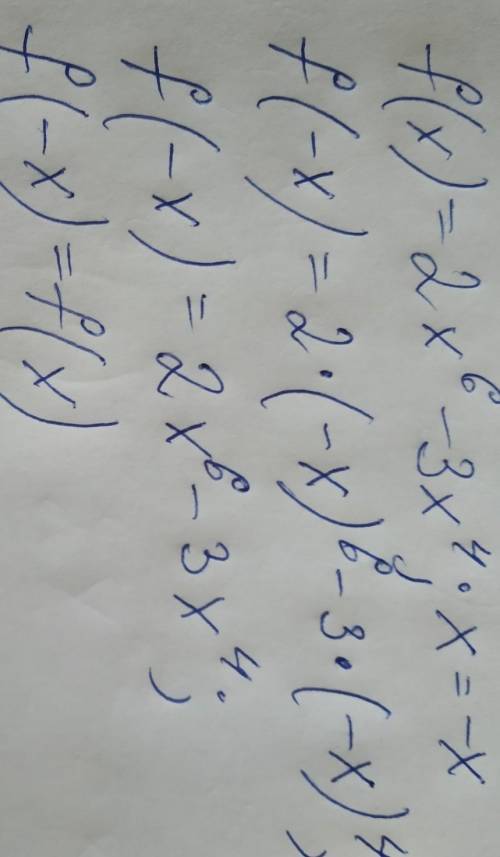 f(x) = 2x⁶ - 3x⁴; x = -x
f(-x) = 2·(-x)⁶ - 3·(-x)⁴;
f(-x) = 2x⁶ - 3x⁴;
f(-x) = f(x)